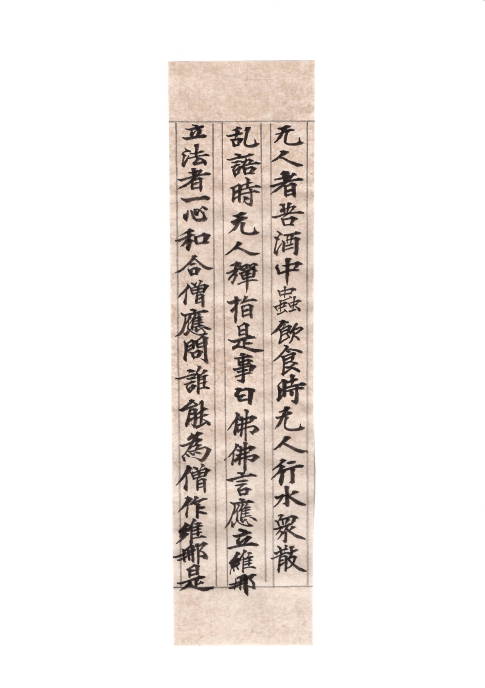 无人者苦酒中蟲飲食時无人行水衆散
乱語時无人彈指是事白佛佛言應立維那
立法者一心和合僧應問誰能為僧作維那是